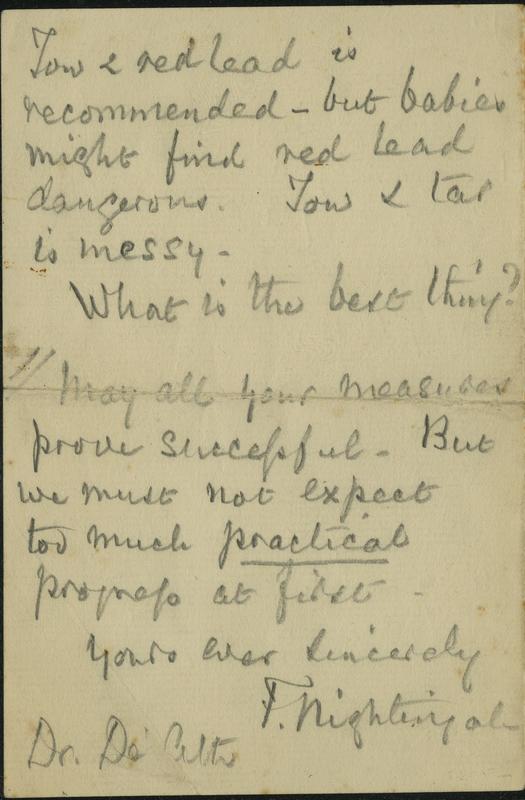 Tow & red lead is
recommended - but babies
might find red lead
dangerous. Tow & tar
is messy -
What is the best thing?
// May all your measures
prove successful - But
we must not expect
too much practical
progress at first -
yours ever sincerely
F. Nightingale
Dr. De'